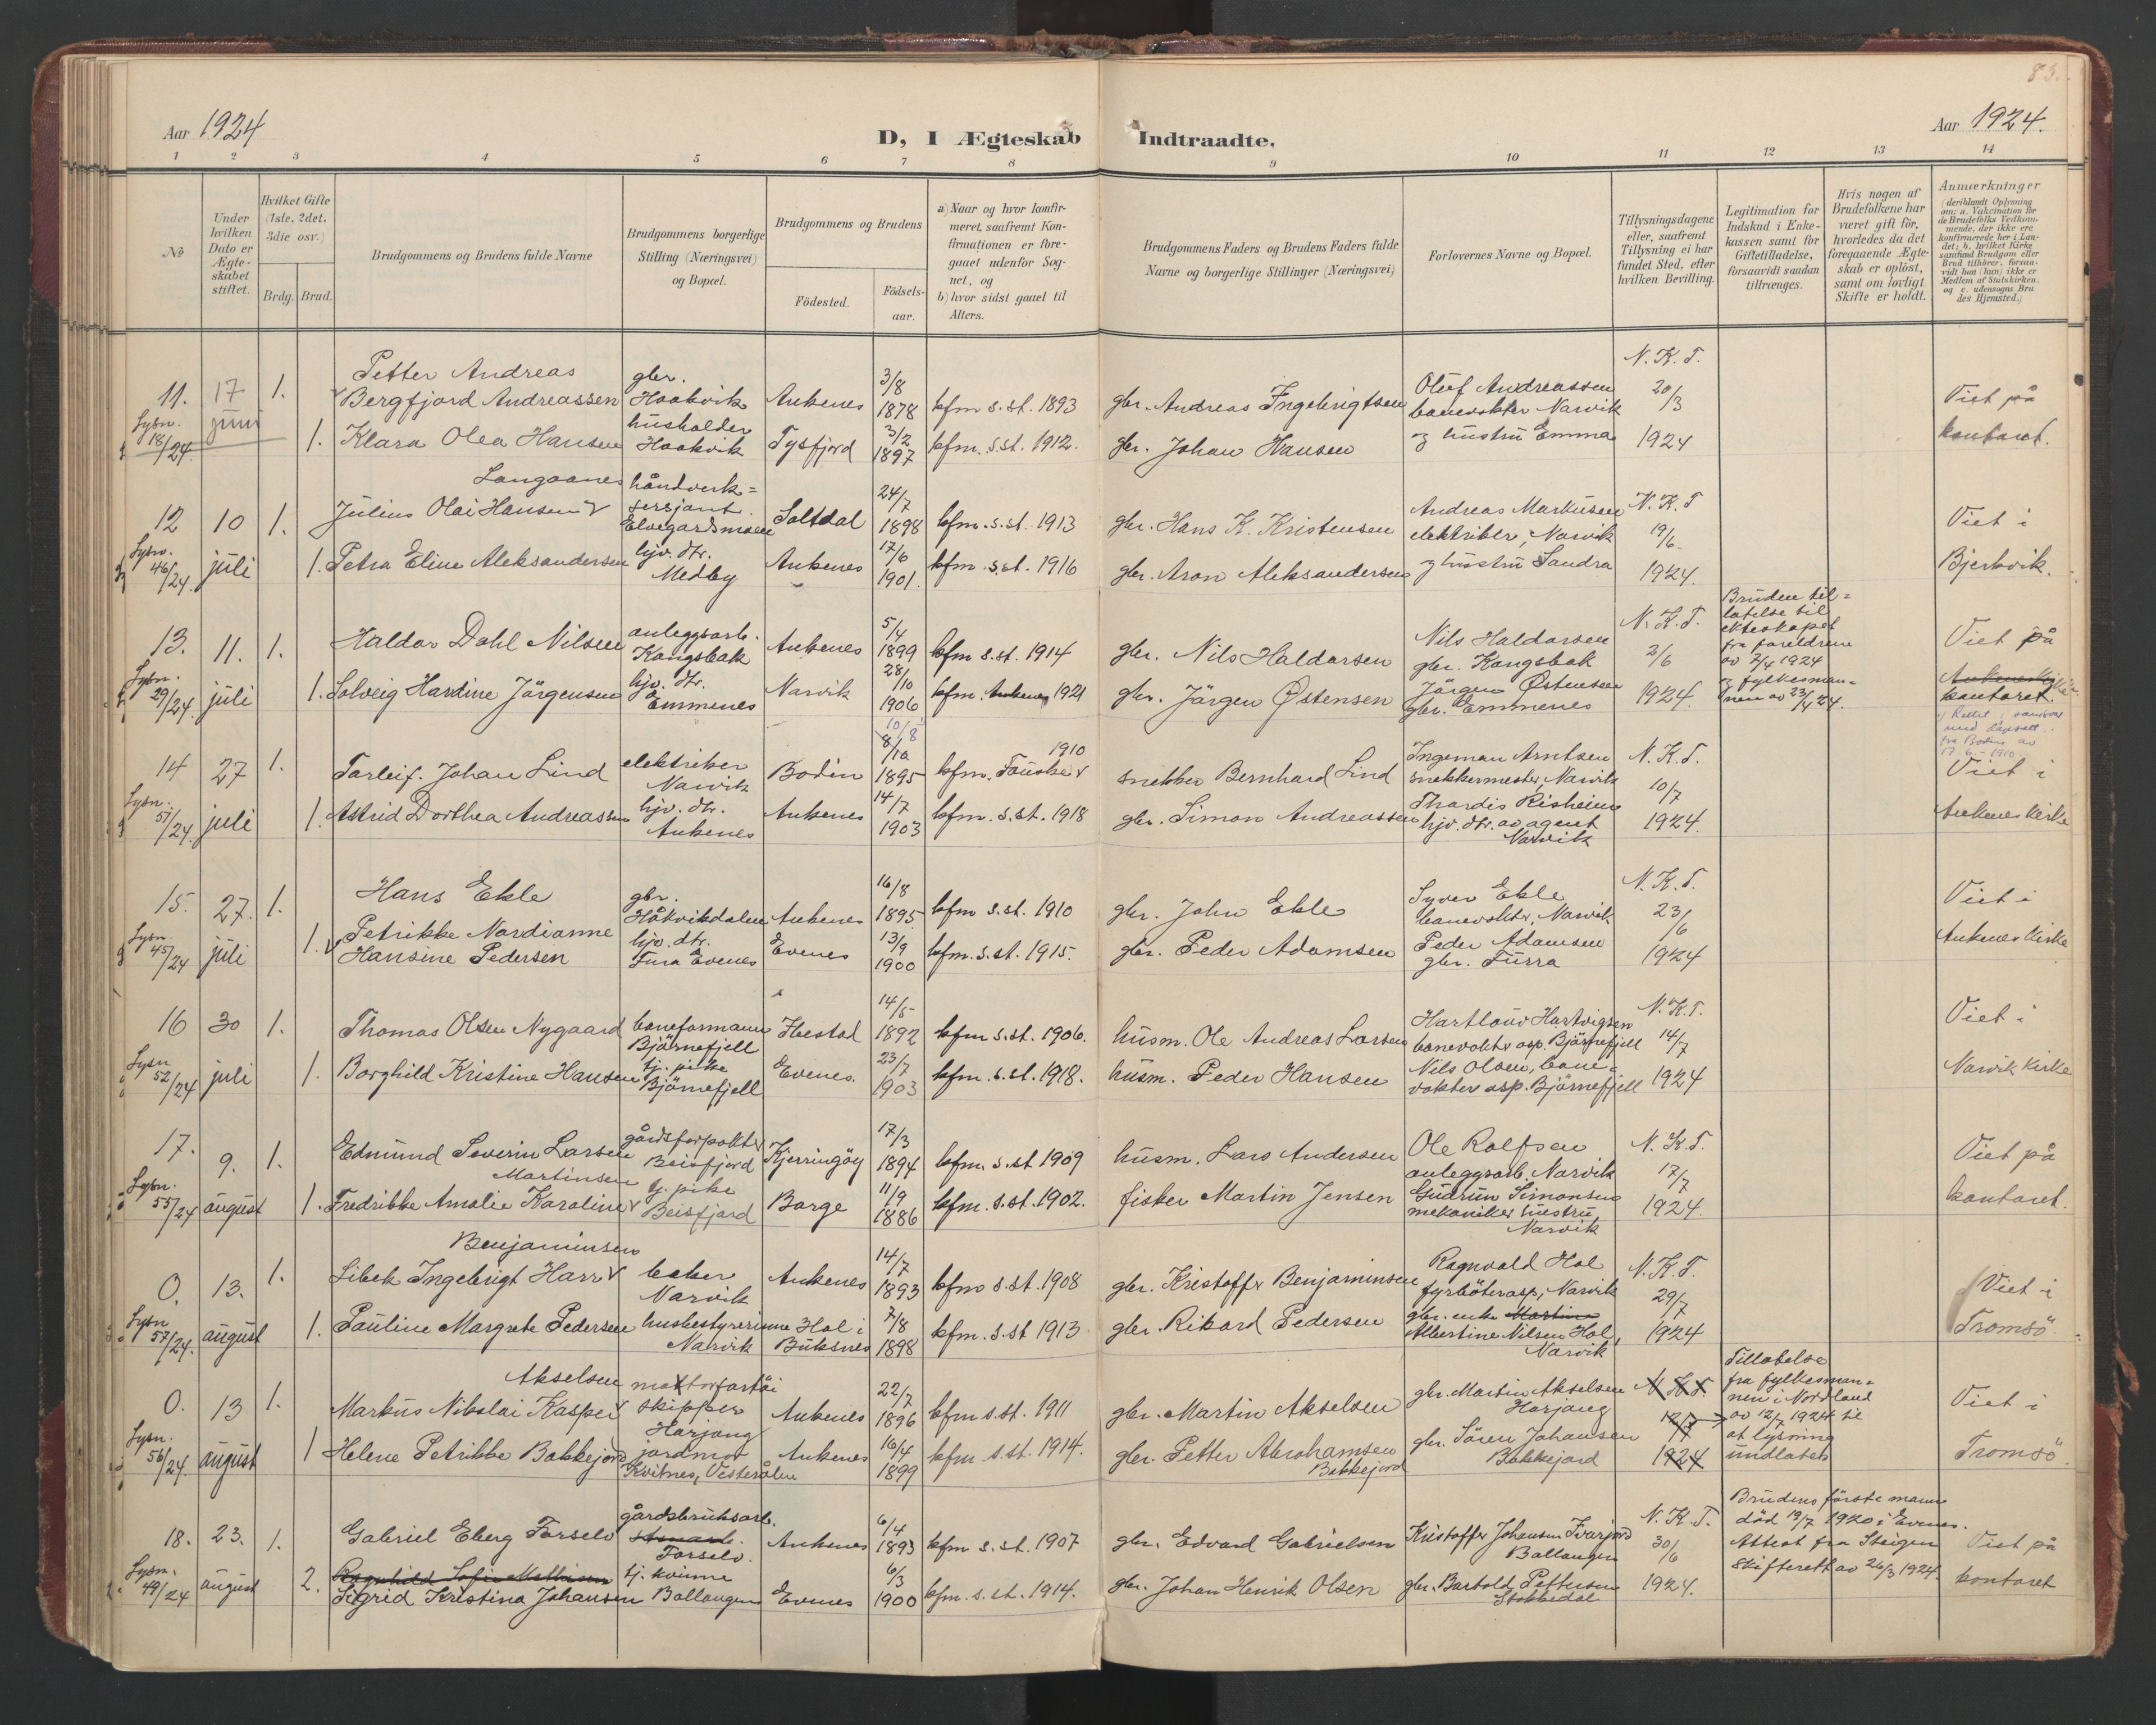 83.
Aar 1924
D, I Ægteskab Indtraadte.
Aar 1924.
1 2 3 4 5 6 7 8 9 10 11 12 13 14
No
Under hvilken Dato er Ægteskabet stiftet.
Hvilket Gifte (1ste, 2det, 3die osv.)
Brdg. Brud.
Brudgommens og Brudens fulde Navne
Brudgommens borgerlige Stilling (Næringsvei) og Bopæl.
Brudgommens og Brudens
Fødested.
Fødselsaar.
a) Naar og hvor konfirmeret, saafremt Konfirmationen er foregaaet udenfor Sognet, og
b) hvor sidst gaaet til Alters.
Brudgommens Faders og Brudens Faders fulde Navne og borgerlige Stillinger (Næringsvei)
Forlovernes Navne og Bopæl.
Tillysningsdagene eller, saafremt Tillysning ei har fundet Sted, efter hvilken Bevilling.
Legitimation for Indskud i Enkekassen samt for Giftetilladelse, forsaavidt saadan tiltrænges.
Hvis nogen af Brudefolkene har været gift før, hvorledes da det foregaaende Ægteskab er opløst, samt om lovligt Skifte er holdt.
Anmærkninger (deriblandt Oplysning om: a. Vakcination for de Brudefolks Vedkommende, der ikke ere konfirmerede her i Landet; b. hvilket Kirkesamfund Brudgom eller Brud tilhører, forsaavidt han (hun) ikke er Medlem af Statskirken, og c. udensogns Brudes Hjemsted.)
11. 17 juni 1. Petter Andreas Bergfjord Andreassen gbr. Haakvik Ankenes 3/8 1878 kfm s.st. 1893 gbr. Andreas Ingebrigtsen Oluf Andreassen banevokter Narvik N.K.T. 20/3 Viet på
Lysn. 18/24. 1. Klara Olea Hansen husholder Haakvik Tysfjord 3/2 1897 kfm. s.st. 1912. gbr. Johan Hansen og hustru Emma 1924 kontoret.
12 10 juli 1. Langaanes Julius Olai Hansen håndverksersjant Elvegardsmoen Saltdal 24/7 1898 kfm. s.st. 1913 gbr. Hans K. Kristensen Andreas Markusen elektriker, Narvik N.K.T 19/6. Viet i
Lysn. 46/24. 1. Petra Eline Aleksandersen hjv. dtr. Medby Ankenes 17/6 1901. kfm. s.st. 1916 gbr. Aron Aleksandersen og hustru Sandra 1924. Bjerkvik.
13. 11. juli 1. Haldor Dahl Nilsen anleggsarb. Kongsbak Ankenes 5/4 1899 kfm s.st. 1914 gbr. Nils Haldorsen Nils Haldorsen gbr. Kongsbak N.K.T. 2/6 Bruden tillatelse til ekteskapet fra foreldrene av 2/4 1924 Viet på
Lysn. 29/24. 1. Solveig Hardine Jörgensen hjv. dtr. Emmenes Narvik 28/10 1906 kfm. Ankenes 1921 gbr. Jörgen Østensen Jörgen Østensen gbr. Emmenes 1924. og fylkesmannen av 23/4 24. kontoret.
14 27 juli 1. Torleif Johan Lind elektriker Narvik Bodin 10/8 8/10 1895 kfm. Fauske 1910 snekker Bernhard Lind Ingeman Arntsen snekkermester, Narvik N.K.T. 10/7 Viet i
Lysn. 57/24. 1. Astrid Dorthea Andreassen hjv. dtr. Ankenes Ankenes 14/7 1903 kfm. s.st. 1918 gbr. Simon Andreassen Thordis Risheim hjv. dtr. av agent Narvik 1924. Ankenes kirke
15. 27. juli 1. Hans Ekle gbr. Håkvikdalen Ankenes 16/8 1895 kfm s.st. 1910 gbr. John Ekle Syver Ekle banevokter, Narvik N.K.T. 23/6 Viet i
Lysn. 45/24 1. Petrikke Nordianne Hansine Pedersen hjv. dtr. Evenes Evenes 13/9 1900 kfm. s.st. 1915. gbr. Peder Adamsen Peder Adamsen gbr. Turra 1924 Ankenes kirke
16 30 juli 1. Thomas Olsen Nygaard baneformann Björnefjell 14/5 1892 kfm s.st. 1906. husm. Ole Andreas Larsen Hartlouv Hartvigsen banevokter asp. Björnefjell N.K.T. 14/7 Viet i
Lysn 52/24 1. Borghild Kristine Hansen tj. pike Björnefjell Evenes. 23/7 1903 kfm. s.st. 1918. husm. Peder Hansen Nils Olsen, banevokter asp. Björnefjell 1924 Narvik kirke
17. 9. august 1. Edmund Severin Larsen gårdsforpakter Beisfjord Kjerringöy 17/3 1894 kfm. s.st 1909 husm. Lars Andersen Ole Rolfsen anleggsarb. Narvik N.K.T. 17/7 Viet på
Lysn. 55/24 1. Martinsen Fredrikke Amalie Karoline tj. pike Beisfjord Borge 11/9 1886 kfm. s.st. 1902. fisker Martin Jensen Gudrun Simonsen mekaniker hustru, Narvik 1924. kontoret.
0. 13. august 1. Benjaminsen Libek Ingebrigt Harr baker Narvik Ankenes 14/7 1893 kfm s.st. 1908 gbr. Kristoffer Benjaminsen Ragnvald Hol fyrböterasp, Narvik N.K.T. 29/7 Viet i
Lysn 57/24. 1. Pauline Margrete Pedersen husbestyrerinne Narvik Hol i Buksnes 7/8 1898 kfm. s.st 1913 gbr. Rikard Pedersen gbr. enke Martine Albertine Nilsen Hol, Narvik 1924 Tromsö
0. 13 august 1. Akselsen Markus Nikolai Kasper motorfartöi skipper Harjang Ankenes 22/7 1896 kfm s.st. 1911 gbr. Martin Akselsen gbr. Martin Akselsen Harjang N.K.T. 12/7 Tillatelse fra fylkesmannen i Nordland av 12/7 1924 til Viet i
Lysn. 56/24. 1 Helene Petrikke Bakkejord jordmor Kvitnes, Vesterålen Ankenes 16/4 1899 kfm s.st. 1914. gbr. Petter Abrahamsen Bakkejord gbr. Sören Johansen Bakkejord 1924 at lysning undlates Tromsö.
18. 23. august 1. Gabriel Eberg Forselv gårdsbruksarb. Forselv. Ankenes 6/4 1893 kfm s.st. 1907 gbr. Edvard Gabrielsen Kristoffer Johansen Ivarjord Ballangen N.K.T. 30/6 Brudens förste mann död 19/7 1920 i Evenes. Viet på
Lysn. 49/24 2. Ragnhild Sofie Mathisen Sigrid Kristina Johansen tj. kvinne Ballangen Evenes 6/3 1900 kfm. s.st. 1914. gbr. Johan Henrik Olsen gbr. Bertold Pettersen Stokkedal 1924. Attest fra Steigen Skifterett av 26/3 1924. kontoret